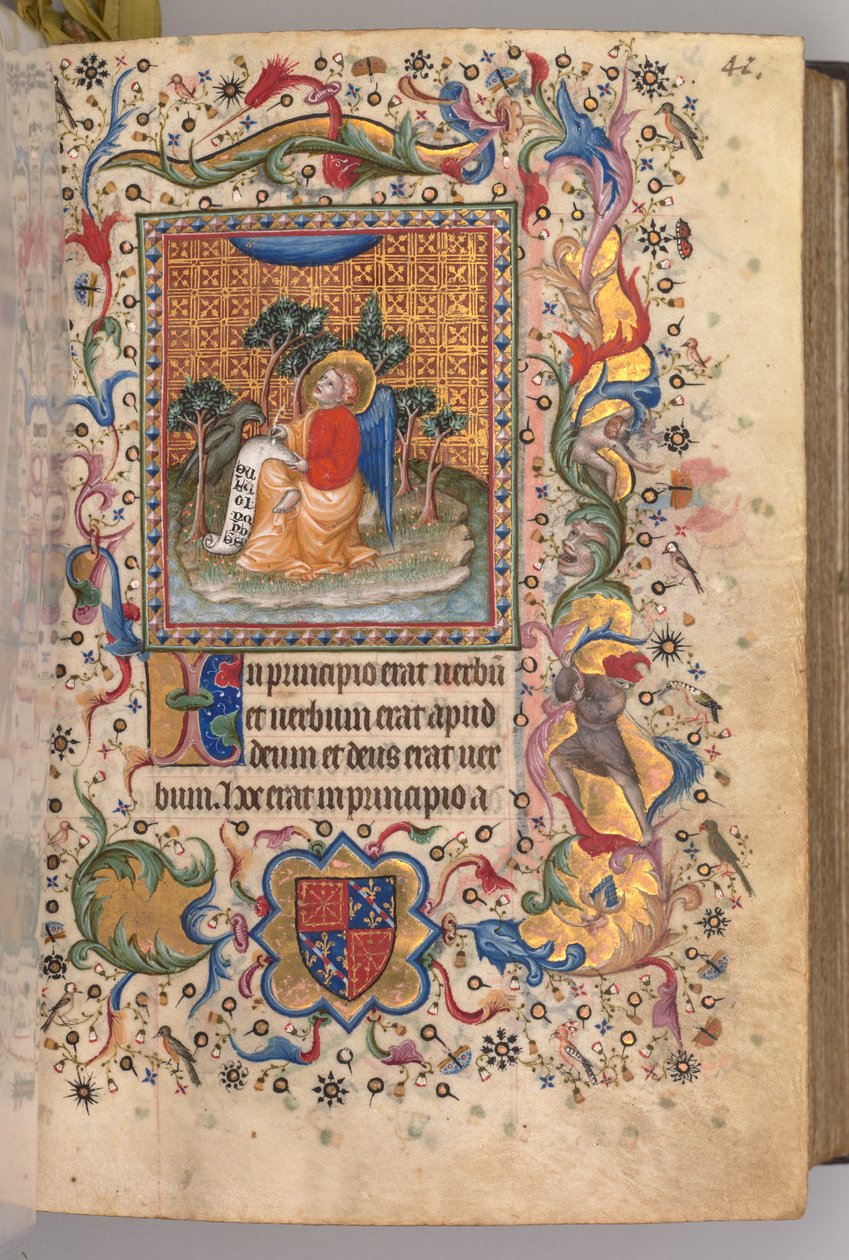 41.
In principio erat uerbū
et uerbum erat apud
deum et deus erat uer
bum. Hoc erat in principio a